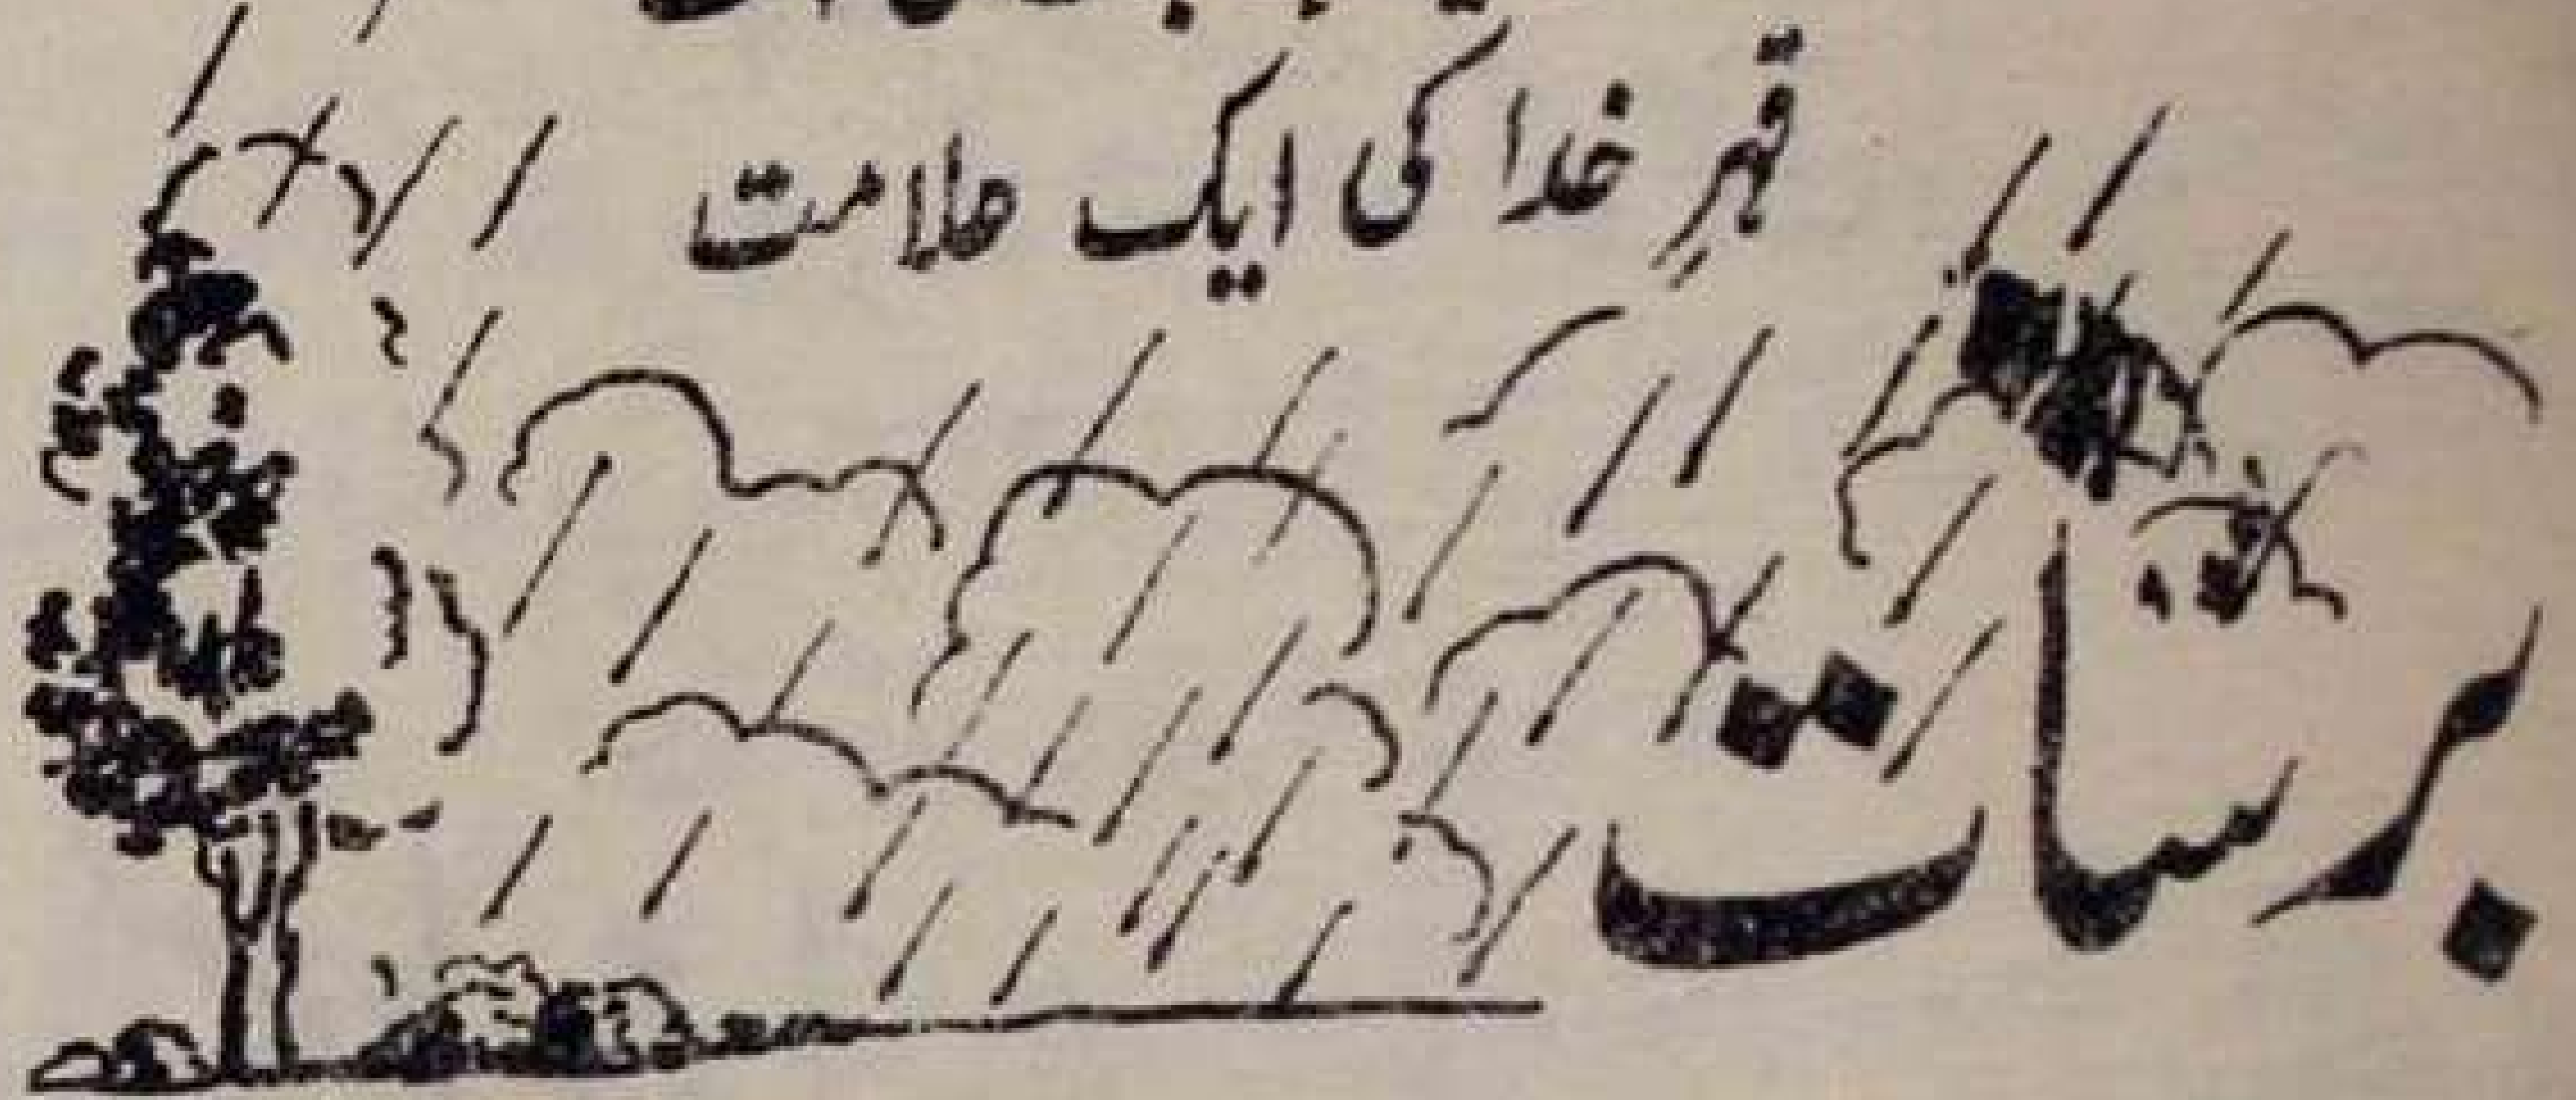 قہرِ خدا کی ایک علامت
برسات